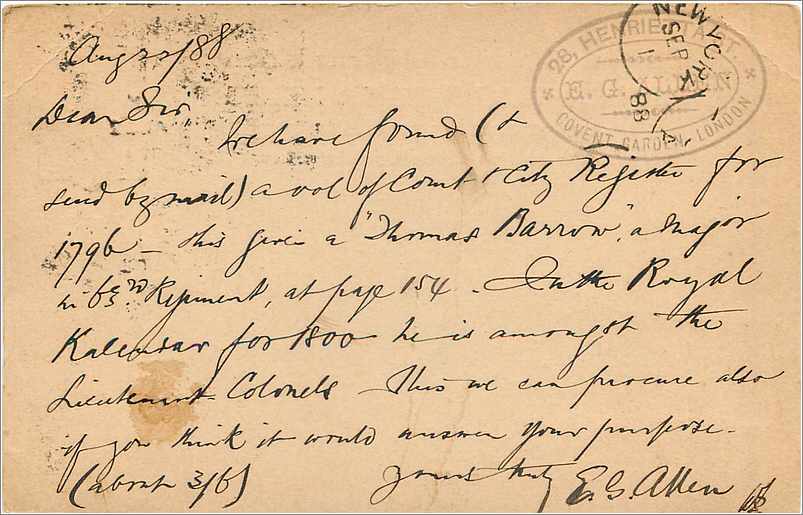 Aug 22/88
28, HENRIETTA ST.
E. G. ALLEN
COVENT GARDEN, LONDON
NEW YORK
SEP
1
88
Dear Sir,
We have found (&
send by mail) a vol of Court & City Register for
1796 – this gives a "Thomas Barrow", a Major
in 63rd Regiment, at page 154 – In the Royal
Kalendar for 1800 he is amongst the
Lieutenant Colonels – This we can procure also
if you think it would answer your purpose –
(about 3/6)
yours truly E. G. Allen